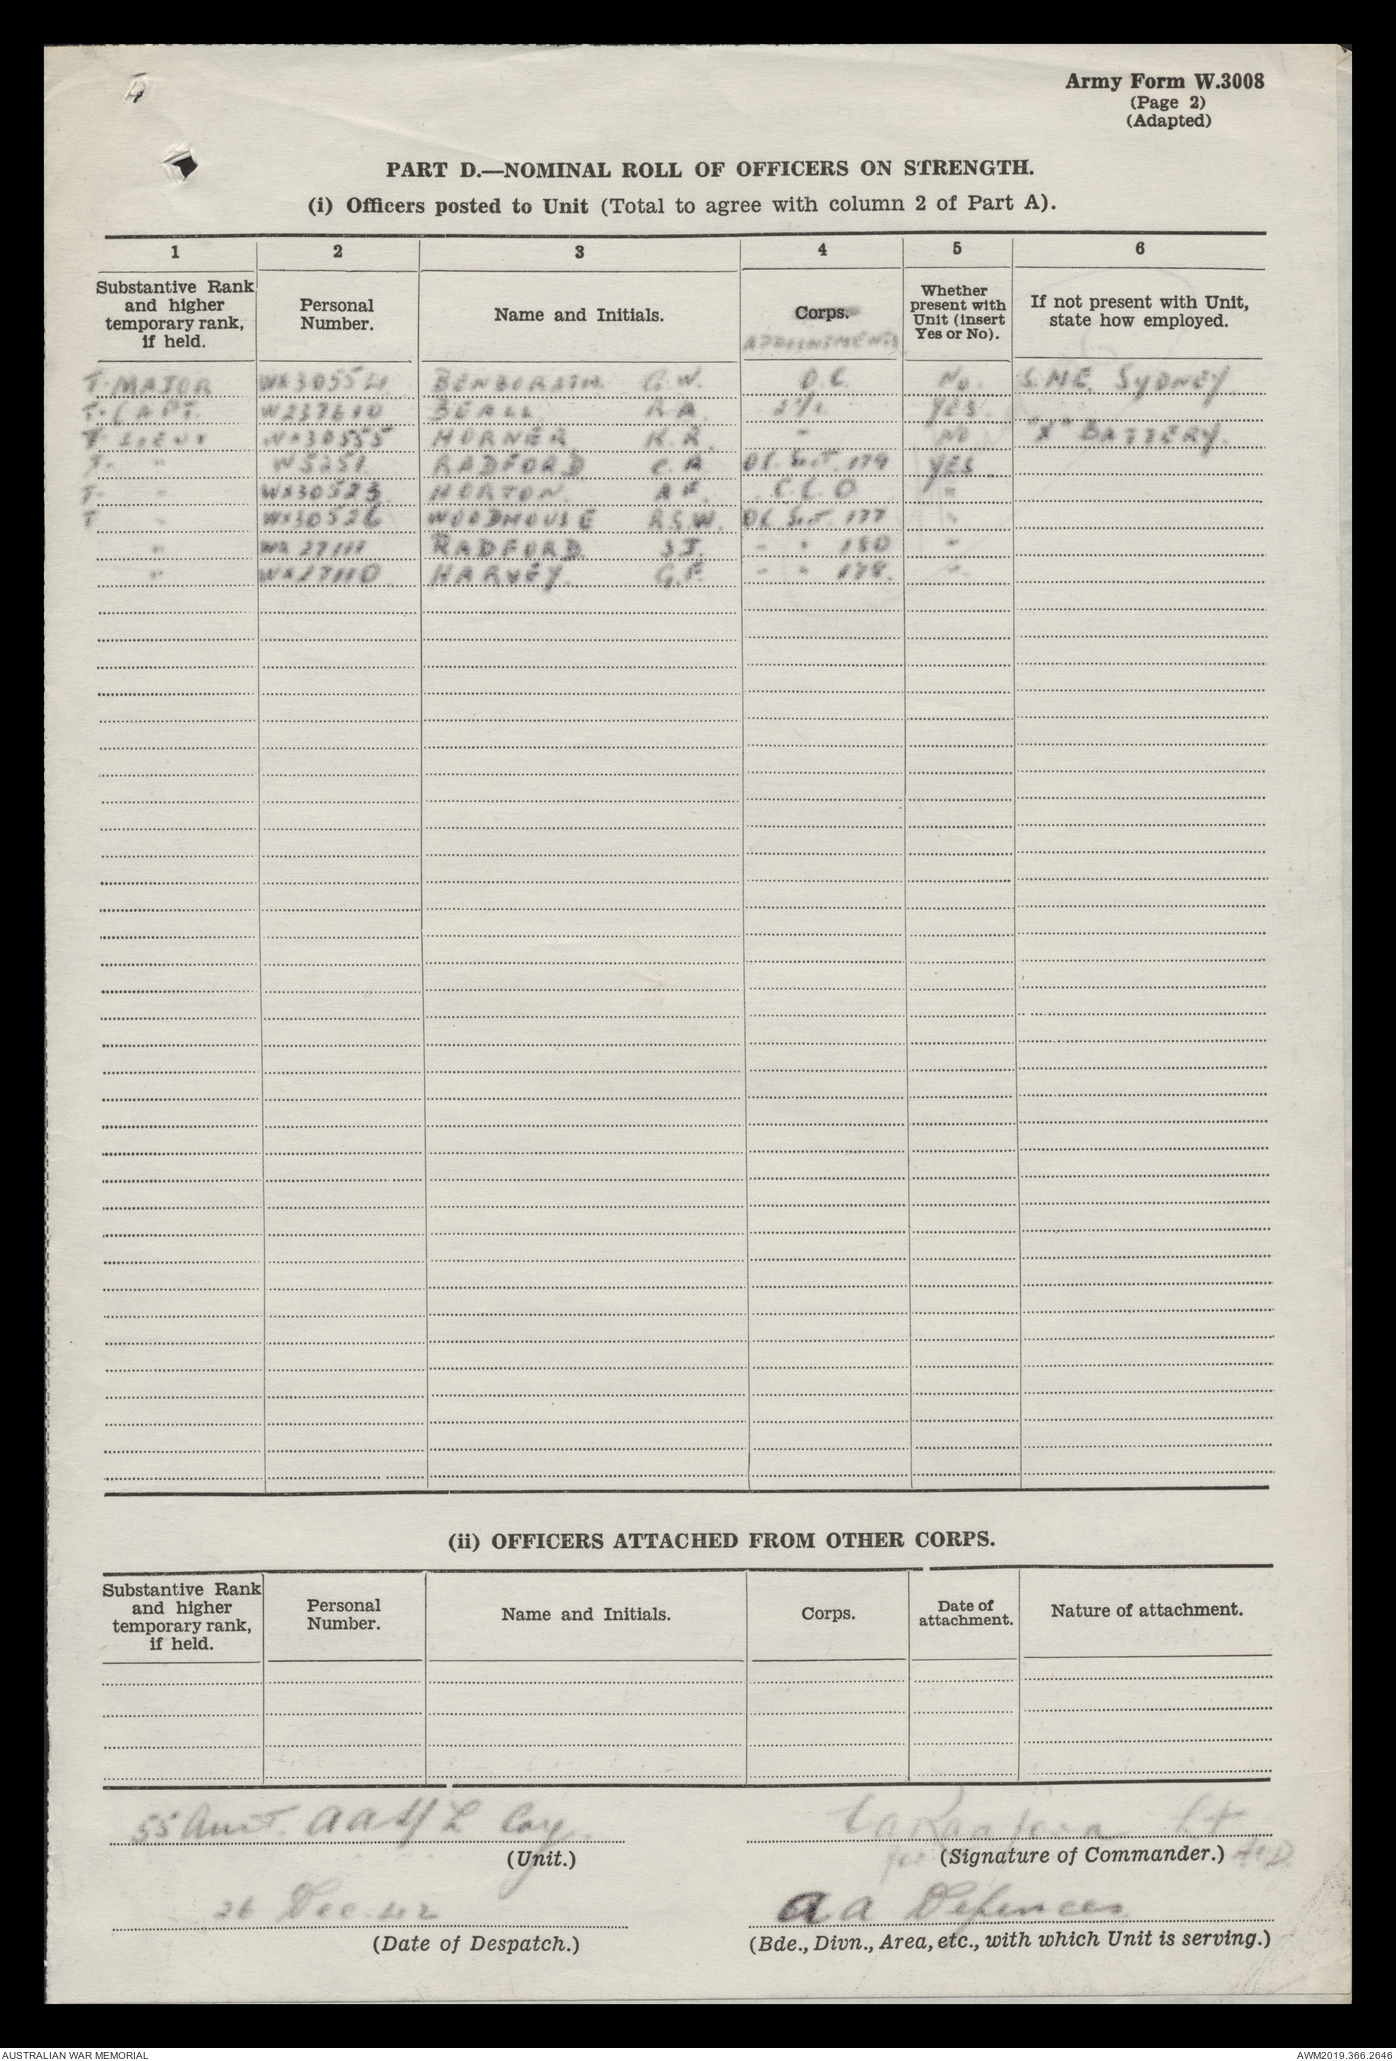 4
Army Form W.3008
(Page 2)
(Adapted)
PART D.—NOMINAL ROLL OF OFFICERS ON STRENGTH.
(i) Officers posted to Unit (Total to agree with column 2 of Part A).
1 2 3 4 5 6
Substantive Rank and higher temporary rank, if held. Personal Number. Name and Initials. Corps. APPOINTMENTS Whether present with Unit (insert Yes or No). If not present with Unit, state how employed.
T. MAJOR G.W. O.C. No. S.M.E. SYDNEY
T. CAPT. W237610 BEALL R.A. 2 I/C YES.
T. LIEUT WX30555 HORNER K.R. - NO "X" BATTERY.
T. " W5251 RADFORD C.A. OC Sect. 179 YES
T. " WX30523 HORTON. A.F. C.C.O "
T " WX30526 WOODHOUSE R.S.W. OC Sect. 177 "
" WX27111 RADFORD S.J. " " 180 "
" WX27110 HARVEY. G.F. " " 178. "
(ii) OFFICERS ATTACHED FROM OTHER CORPS.
Substantive Rank and higher temporary rank, if held. Personal Number. Name and Initials. Corps. Date of attachment. Nature of attachment.
55 Aust. A A S/L Coy. Lt
(Unit.) (Signature of Commander.)
26 Dec. 42 A A Defences
(Date of Despatch.) (Bde., Divn., Area, etc., with which Unit is serving.)
AUSTRALIAN WAR MEMORIAL AWM2019.366.2646